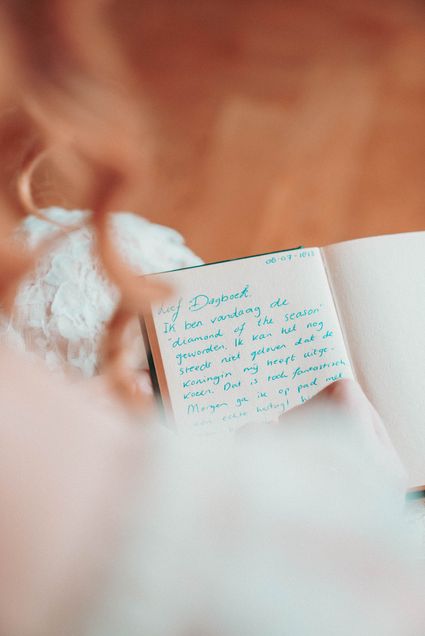 06-07-1813
Lief Dagboek,
Ik ben vandaag de
"diamond of the season"
geworden. Ik kan het nog
steeds niet geloven dat de
koningin mij heeft uitge-
kozen. Dat is toch fantastisch
Morgen ga ik op pad met
een echte